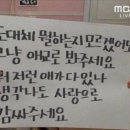 MBC
도대체 뭘하는지 모르겠어도
그냥 애교로 봐주세요
뭐 저런 애가 다 있나
생각나도 사랑으로
감싸주세요